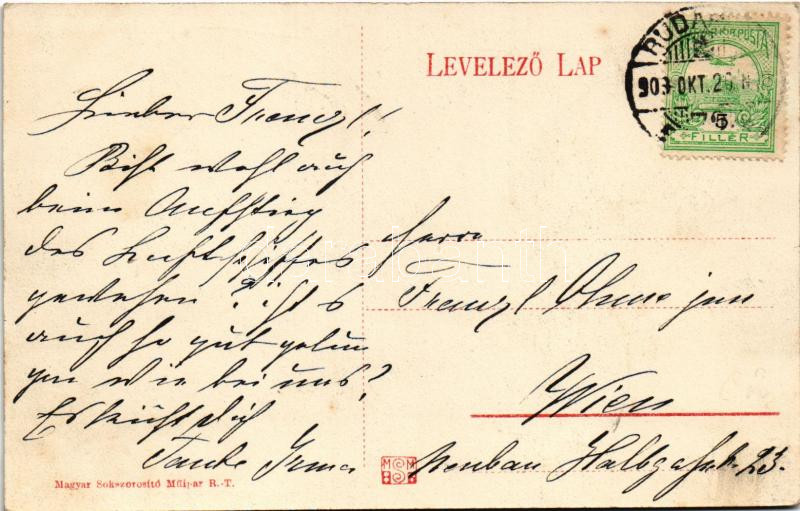 LEVELEZŐ LAP
BUDA
MAGYAR KIR. POSTA
909 OKT. 2
5
FILLÉR
Lieber Franzl!
Bist wohl auch
beim Aufstieg
des Luftschiffes
gewesen? ist's
auch so gut gelun
gen wie bei uns?
Es küßt dich
Tante Irma
Herrn
Franzl jun
Wien
Neubau 23.
MSM
Magyar Sokszorosító Műipar R.-T.